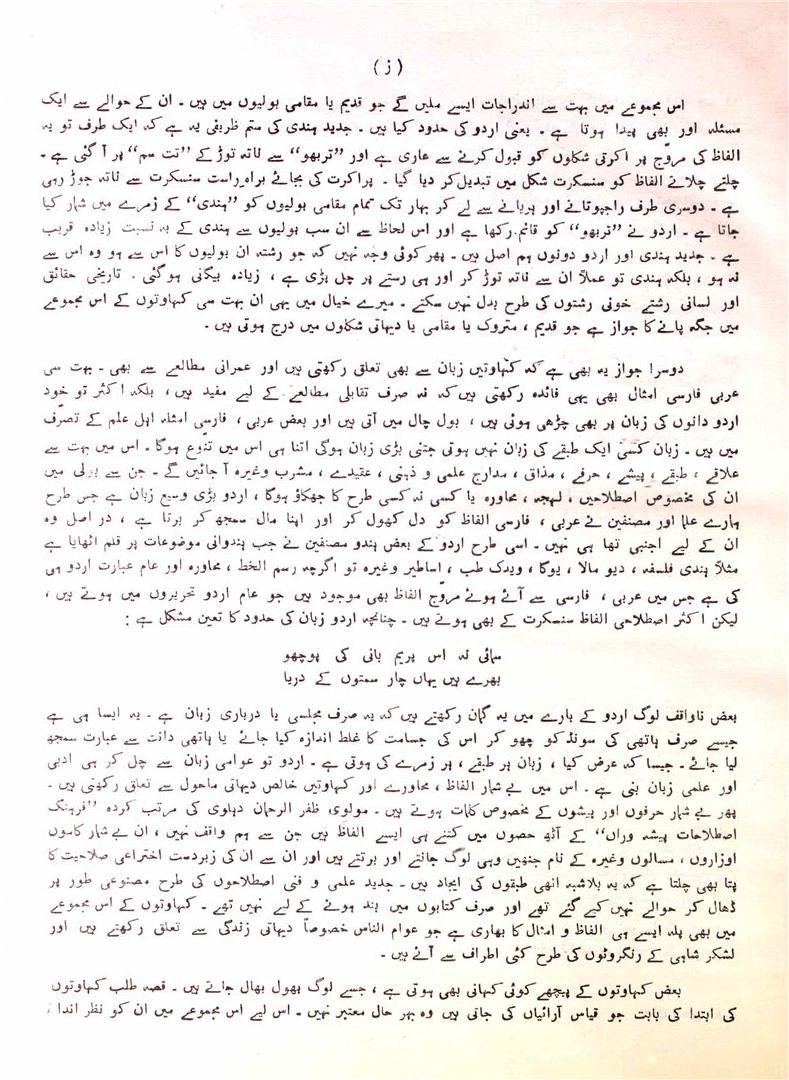 (ز)
اس مجموعے میں بہت سے اندراجات ایسے ملیں گے جو قدیم یا مقامی بولیوں میں ہیں ۔ ان کے حوالے سے ایک
مسئلہ اور بھی پیدا ہوتا ہے ۔ یعنی اردو کی حدود کیا ہیں ۔ جدید ہندی کی ستم ظریفی یہ ہے کہ ایک طرف تو یہ
الفاظ کی مروّج پر اکرتی شکلوں کو قبول کرنے سے عاری ہے اور ”تربھو“ سے ناتہ توڑ کے ”تت سم“ پر آ گئی ہے ۔
چلتے چلاتے الفاظ کو سنسکرت شکل میں تبدیل کر دیا گیا ۔ پراکرت کی بجائے براہ راست سنسکرت سے ناتہ جوڑ رہی
ہے ۔ دوسری طرف راجپوتانے اور ہریانے سے لے کر بہار تک تمام مقامی بولیوں کو ”ہندی“ کے زمرے میں شمار کیا
جاتا ہے ۔ اردو نے ”تربھو“ کو قائم رکھا ہے اور اس لحاظ سے ان سب بولیوں سے ہندی کے بہ نسبت زیادہ قریب
ہے ۔ جدید ہندی اور اردو دونوں ہم اصل ہیں ۔ پھر کوئی وجہ نہیں کہ جو رشتہ ان بولیوں کا اس سے ہو وہ اس سے
نہ ہو ، بلکہ ہندی تو عملاً ان سے ناتہ توڑ کر اور ہی رستے پر چل پڑی ہے ، زیادہ بیگانی ہوگئی ۔ تاریخی حقائق
اور لسانی رشتے خونی رشتوں کی طرح بدل نہیں سکتے ۔ میرے خیال میں یہی ان بہت سی کہاوتوں کے اس مجموعے
میں جگہ پانے کا جواز ہے جو قدیم ، متروک یا مقامی یا دیہاتی شکلوں میں درج ہوتی ہیں ۔
دوسرا جواز یہ بھی ہے کہ کہاوتیں زبان سے بھی تعلق رکھتی ہیں اور عمرانی مطالعے سے بھی ۔ بہت سی
عربی فارسی امثال بھی یہی فائدہ رکھتی ہیں کہ نہ صرف تقابلی مطالعے کے لیے مفید ہیں ، بلکہ اکثر تو خود
اردو دانوں کی زبان پر بھی چڑھی ہوئی ہیں ، بول چال میں آتی ہیں اور بعض عربی ، فارسی امثلہ اہل علم کے تصرّف
میں ہیں ۔ زبان کسی ایک طبقے کی زبان نہیں ہوتی جتنی بڑی زبان ہوگی اتنا ہی اس میں تنوع ہوگا ۔ اس میں بہت سے
علاقے ، طبقے ، پیشے ، حرفے ، مذاق ، مدارج علمی و ذہنی ، عقیدے ، مشرب وغیرہ آ جائیں گے ۔ جن سے بولی میں
ان کی مخصوص اصطلاحیں ، لہجہ ، محاورہ یا کسی نہ کسی طرح کا جھکاؤ ہوگا ، اردو بڑی وسیع زبان ہے جس طرح
ہمارے علما اور مصنفین نے عربی ، فارسی الفاظ کو دل کھول کر اور اپنا مال سمجھ کر برتا ہے ، در اصل وہ
ان کے لیے اجنبی تھا ہی نہیں ۔ اسی طرح اردو کے بعض ہندو مصنفین نے جب ہندوانی موضوعات پر قلم اٹھایا ہے
مثلاً ہندی فلسفہ ، دیو مالا ، یوگا ، ویدک طب ، اساطیر وغیرہ تو اگرچہ رسم الخط ، محاورہ اور عام عبارت اردو ہی
کی ہے جس میں عربی ، فارسی سے آئے ہوئے مروّج الفاظ بھی موجود ہیں جو عام اردو تحریروں میں ہوتے ہیں ،
لیکن اکثر اصطلاحی الفاظ سنسکرت کے بھی ہوتے ہیں ۔ چنانچہ اردو زبان کی حدود کا تعین مشکل ہے :
سمائی نہ اس پریم بانی کی پوچھو
بھرے ہیں یہاں چار سمتوں کے دریا
بعض ناواقف لوگ اردو کے بارے میں یہ گمان رکھتے ہیں کہ یہ صرف مجلسی یا درباری زبان ہے ۔ یہ ایسا ہی ہے
جیسے صرف ہاتھی کی سونڈ کو چھو کر اس کی جسامت کا غلط اندازہ کیا جائے یا ہاتھی دانت سے عبارت سمجھ
لیا جائے ۔ جیسا کہ عرض کیا ، زبان ہر طبقے ، ہر زمرے کی ہوتی ہے ۔ اردو تو عوامی زبان سے چل کر ہی ادبی
اور علمی زبان بنی ہے ۔ اس میں بے شمار الفاظ ، محاورے اور کہاوتیں خالص دیہاتی ماحول سے تعلق رکھتی ہیں ۔
پھر بے شمار حرفوں اور پیشوں کے مخصوص کلمات ہوتے ہیں ۔ مولوی ظفر الرحمان دہلوی کی مرتب کردہ ”فرہنگ
اصطلاحات پیشہ وراں“ کے آٹھ حصوں میں کتنے ہی ایسے الفاظ ہیں جن سے ہم واقف نہیں ، ان بے شمار کاموں
اوزاروں ، مسالوں وغیرہ کے نام جنھیں وہی لوگ جانتے اور برتتے ہیں اور ان سے ان کی زبردست اختراعی صلاحیت کا
پتا بھی چلتا ہے کہ یہ بلاشبہ انھی طبقوں کی ایجاد ہیں ۔ جدید علمی و فنی اصطلاحوں کی طرح مصنوعی طور پر
ڈھال کر حوالے نہیں کیے گئے تھے اور صرف کتابوں میں بند ہونے کے لیے نہیں تھے ۔ کہاوتوں کے اس مجموعے
میں بھی پلہ ایسے ہی الفاظ و امثال کا بھاری ہے جو عوام الناس خصوصاً دیہاتی زندگی سے تعلق رکھتے ہیں اور
لشکر شاہی کے رنگروٹوں کی طرح کئی اطراف سے آئے ہیں ۔
بعض کہاوتوں کے پیچھے کوئی کہانی بھی ہوتی ہے ، جسے لوگ بھول بھال جاتے ہیں ۔ قصہ طلب کہاوتوں
کی ابتدا کی بابت جو قیاس آرائیاں کی جاتی ہیں وہ بہر حال معتبر نہیں ۔ اس لیے اس مجموعے میں ان کو نظر اندا